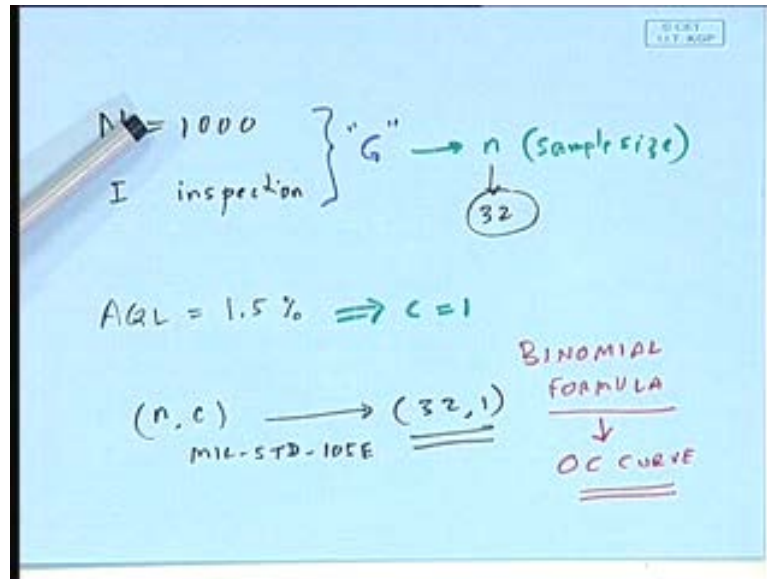 © CET
I.I.T. KGP
N = 1000
I inspection
"G" → n (sample size)
32
AQL = 1.5 % ⇒ C = 1
(n, c) → (32, 1)
MIL-STD-105E
BINOMIAL
FORMULA
↓
OC CURVE